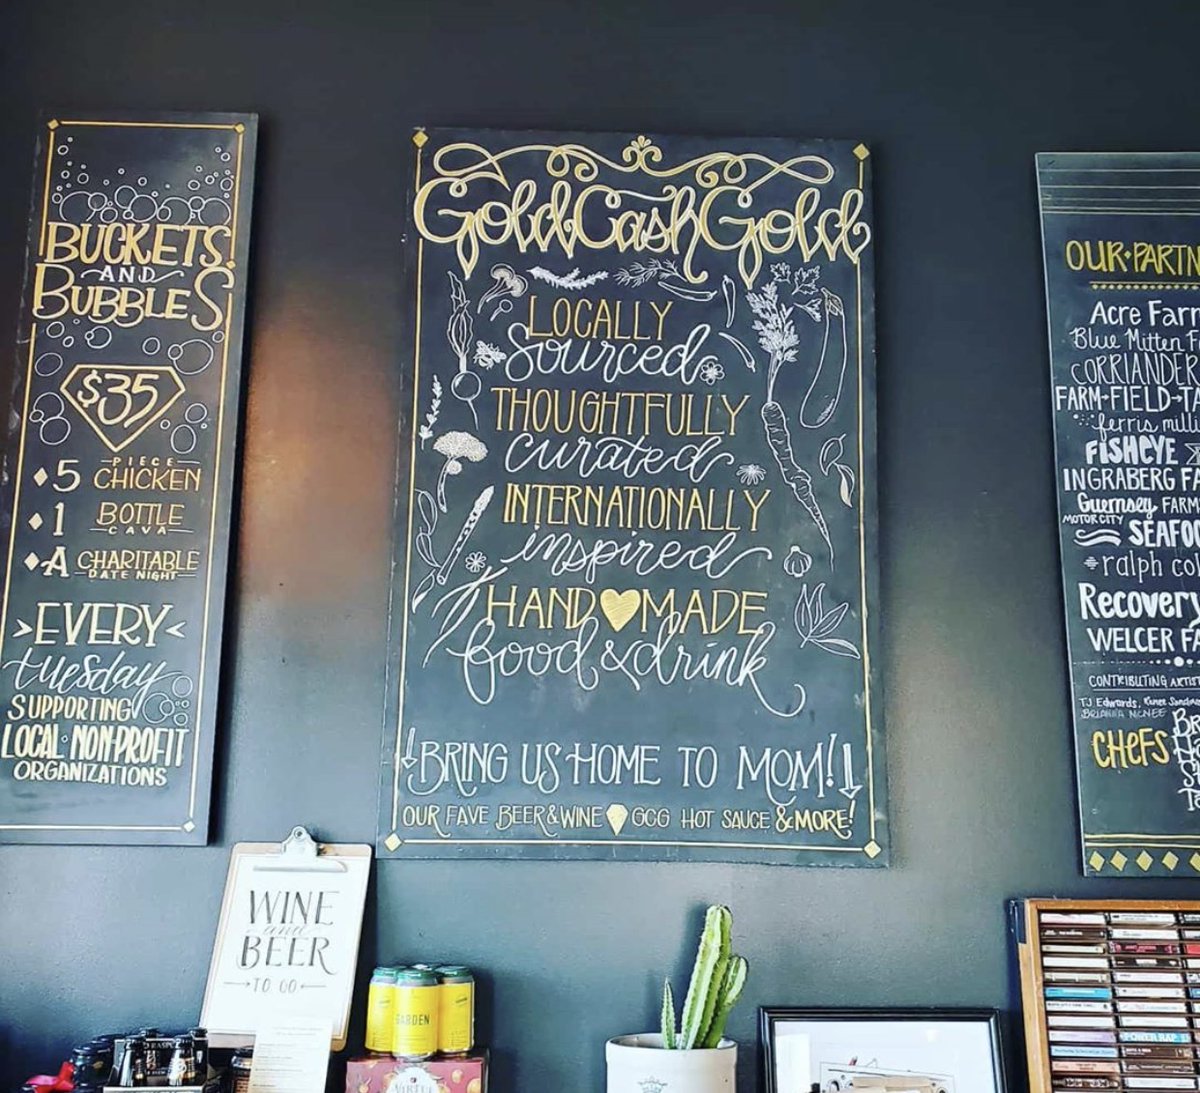 BUCKETS
AND
BUBBLES
$35
5 PIECE CHICKEN
1 BOTTLE CAVA
A CHARITABLE DATE NIGHT
EVERY
tuesday
SUPPORTING
LOCAL NON-PROFIT
ORGANIZATIONS
GoldCashGold
LOCALLY
sourced
THOUGHTFULLY
curated
INTERNATIONALLY
inspired
HAND MADE
food & drink
BRING US HOME TO MOM!
OUR FAVE BEER & WINE GCG HOT SAUCE & MORE!
OUR PARTN
Acre Far
Blue Mitten F
CORRIANDER
FARM FIELD TA
ferris mill
FISHEYE
INGRABERG FA
Guernsey FARM
MOTOR CITY SEAFO
ralph col
Recovery
WELCER FA
CONTRIBUTING ARTIST
TJ Edwards,
BRIANNA MCNEE
CHEFS
WINE
and
BEER
TO GO
GARDEN
VIRTUE
POWER RAP